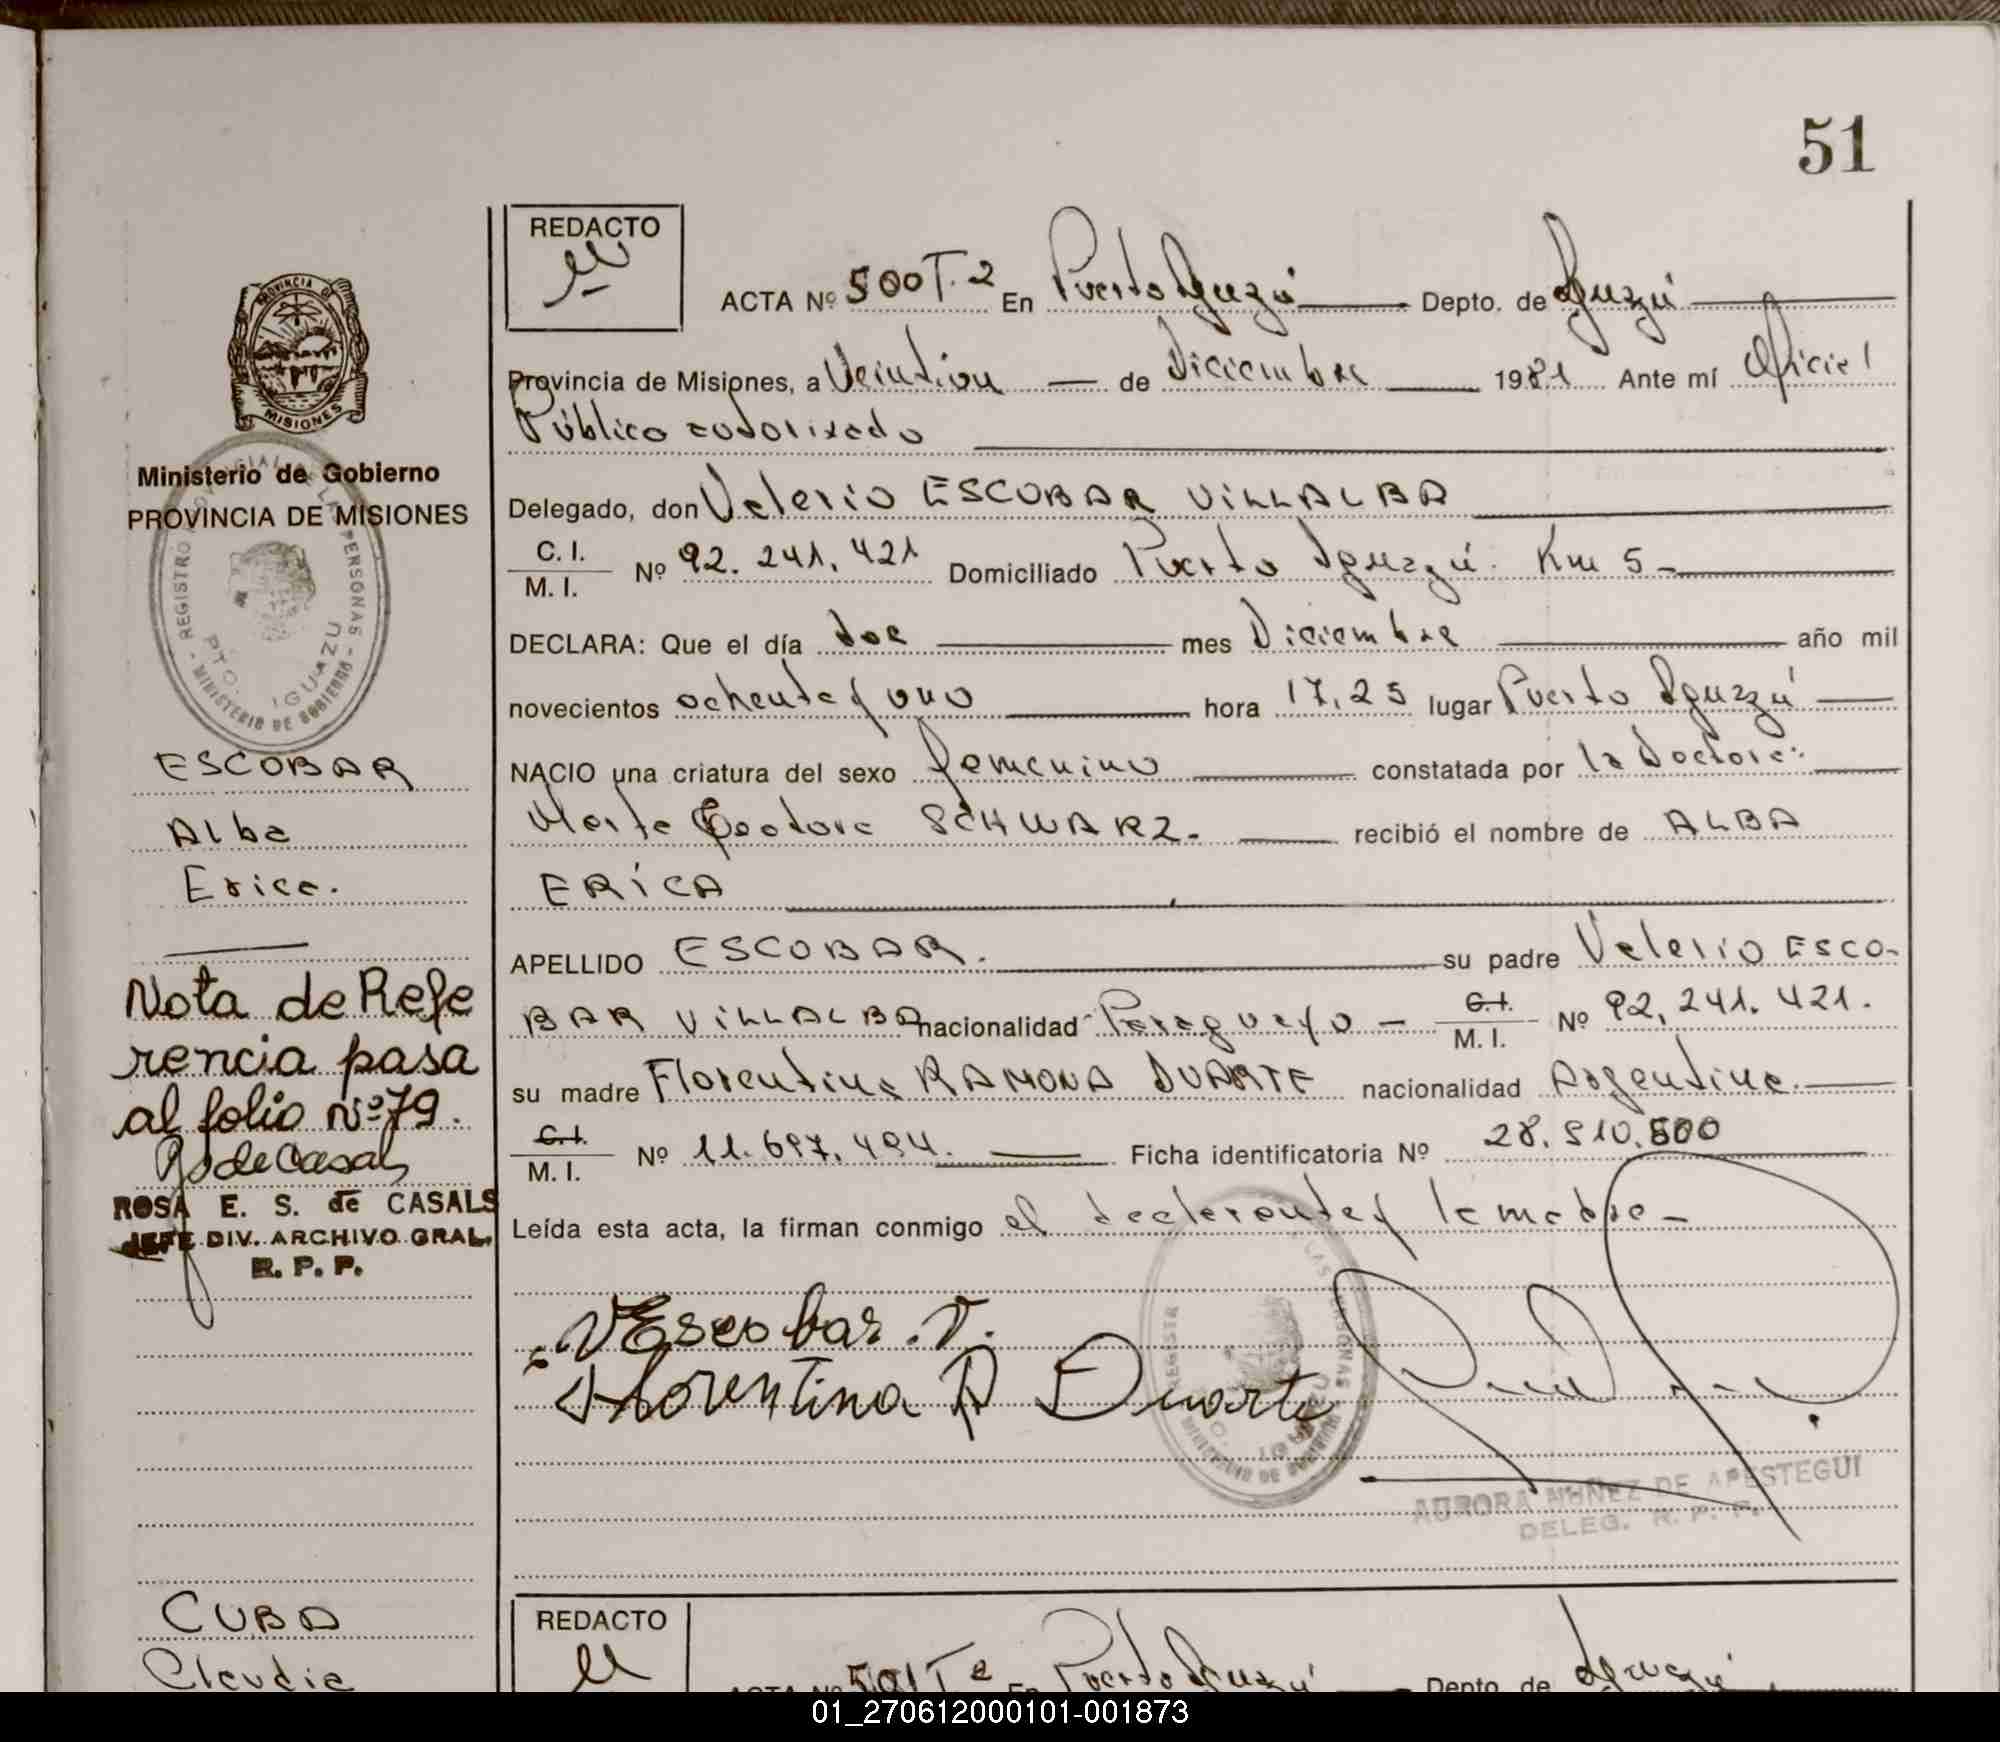 51
REDACTO
ACTA Nº 500 T.2 En Puerto Iguazú Depto. de Iguazú
PROVINCIA DE
MISIONES
Provincia de Misiones, a Veintiún de Diciembre 1981 Ante mí Oficial
Público autorizado
Ministerio de Gobierno
PROVINCIA DE MISIONES
Delegado, don Valerio ESCOBAR VILLALBA
C. I.
M. I.
Nº 92.241.421 Domiciliado Puerto Iguazú Km 5-
REGISTRO PROVINCIAL DE LAS PERSONAS - MINISTERIO DE GOBIERNO -
PTO. IGUAZU
DECLARA: Que el día doce mes Diciembre año mil
novecientos ochenta y uno hora 17,25 lugar Puerto Iguazú
NACIO una criatura del sexo femenino constatada por la Doctora:
Marta Teodora SCHWARZ.- recibió el nombre de ALBA
ERICA
ESCOBAR
Alba
Erica.
APELLIDO ESCOBAR. su padre Valerio ESCO-
BAR VILLALBA nacionalidad Paraguayo - C.I.
M. I. Nº 92.241.421.
su madre Florentina RAMONA DUARTE nacionalidad Argentina.-
C.I.
M. I.
Nº 11.697.494. Ficha identificatoria Nº 28.910.800
Leída esta acta, la firman conmigo el declarante y la madre-
Nota de Refe
rencia pasa
al folio Nº 79.
R de Casals
ROSA E. S. de CASALS
JEFE DIV. ARCHIVO GRAL.
R. P. P.
VEscobar.V.
Florentina R Duarte
AURORA NUÑEZ DE APESTEGUI
DELEG. R. P. P.
CUBA
Claudia
REDACTO
ACTA Nº 501 T.2 En Puerto Iguazú Depto. de Iguazú
01_270612000101-001873